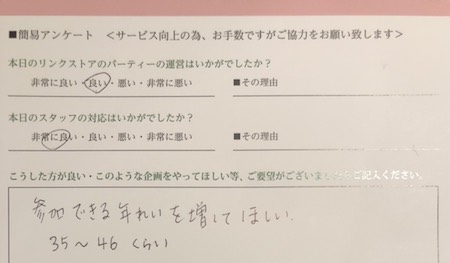 ■簡易アンケート ＜サービス向上の為、お手数ですがご協力をお願い致します＞
本日のリンクストアのパーティーの運営はいかがでしたか？
非常に良い・良い・悪い・非常に悪い ■その理由
本日のスタッフの対応はいかがでしたか？
非常に良い・良い・悪い・非常に悪い ■その理由
こうした方が良い・このような企画をやってほしい等、ご要望がございましたらご記入ください。
参加できる年れいを増してほしい.
35～46 くらい